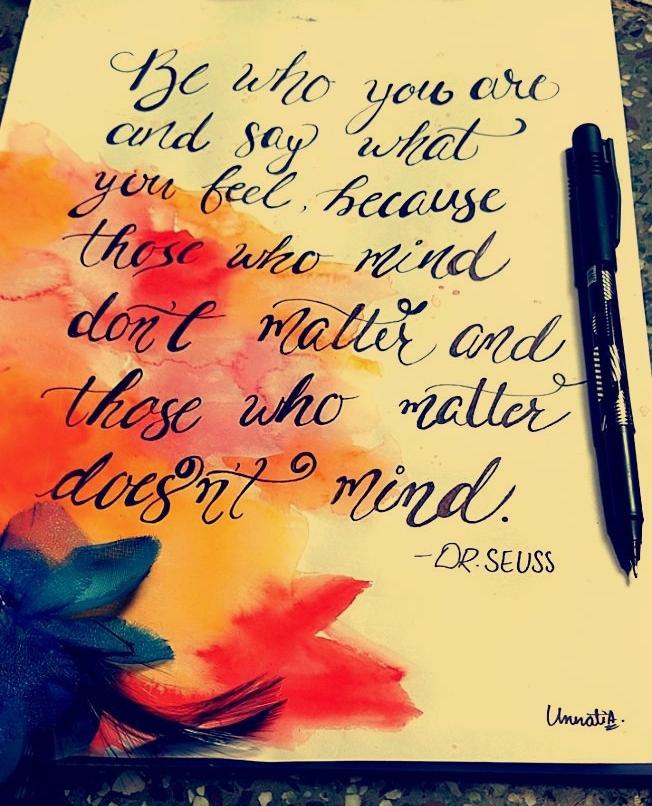 Be who you are
and say what
you feel, because
those who mind
don't matter and
those who matter
doesn't mind.
-DR. SEUSS
Unnati A.